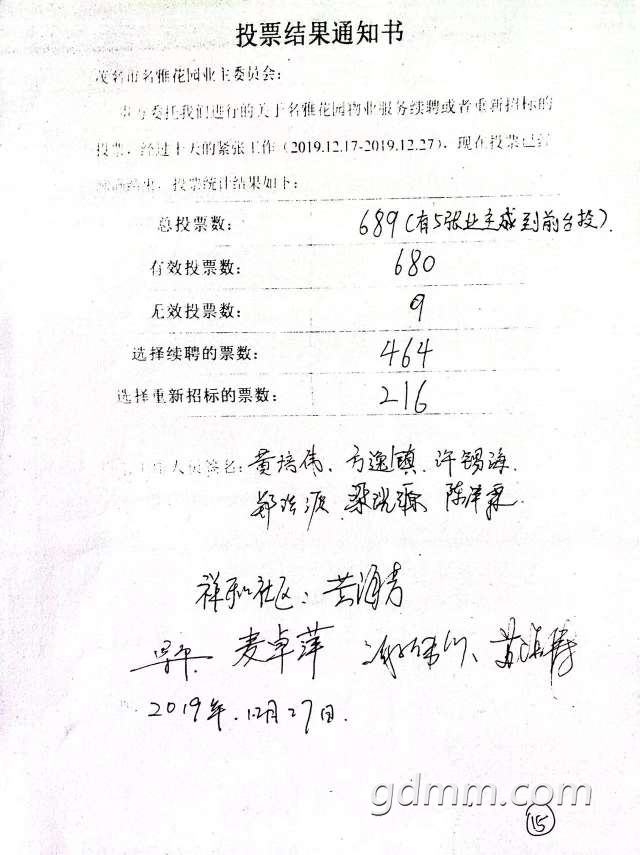 投票结果通知书
茂名市名雅花园业主委员会：
贵方委托我们进行的关于名雅花园物业服务续聘或者重新招标的
投票，经过十天的紧张工作（2019.12.17-2019.12.27），现在投票已经
结束，投票统计结果如下：
总投票数： 689（有5张业主或到前台投）.
有效投票数： 680
无效投票数： 9
选择续聘的票数： 464
选择重新招标的票数： 216
工作人员签名：黄培伟、方逸镇、许锡海、
郑 源 梁 源 陈泽霖
祥和社区：黄海青
麦卓萍 苏
2019年.12月27日.
gdmm.com
15